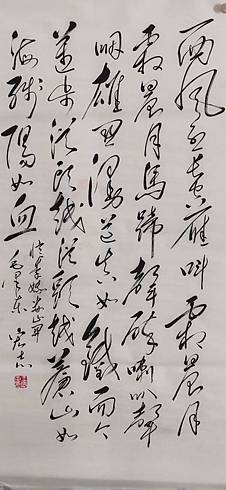 西风烈长空雁叫霜晨月
霜晨月马蹄声碎喇叭声
咽雄关漫道真如铁而今
迈步从头越从头越苍山如
海残阳如血
忆秦娥娄山关
毛泽东